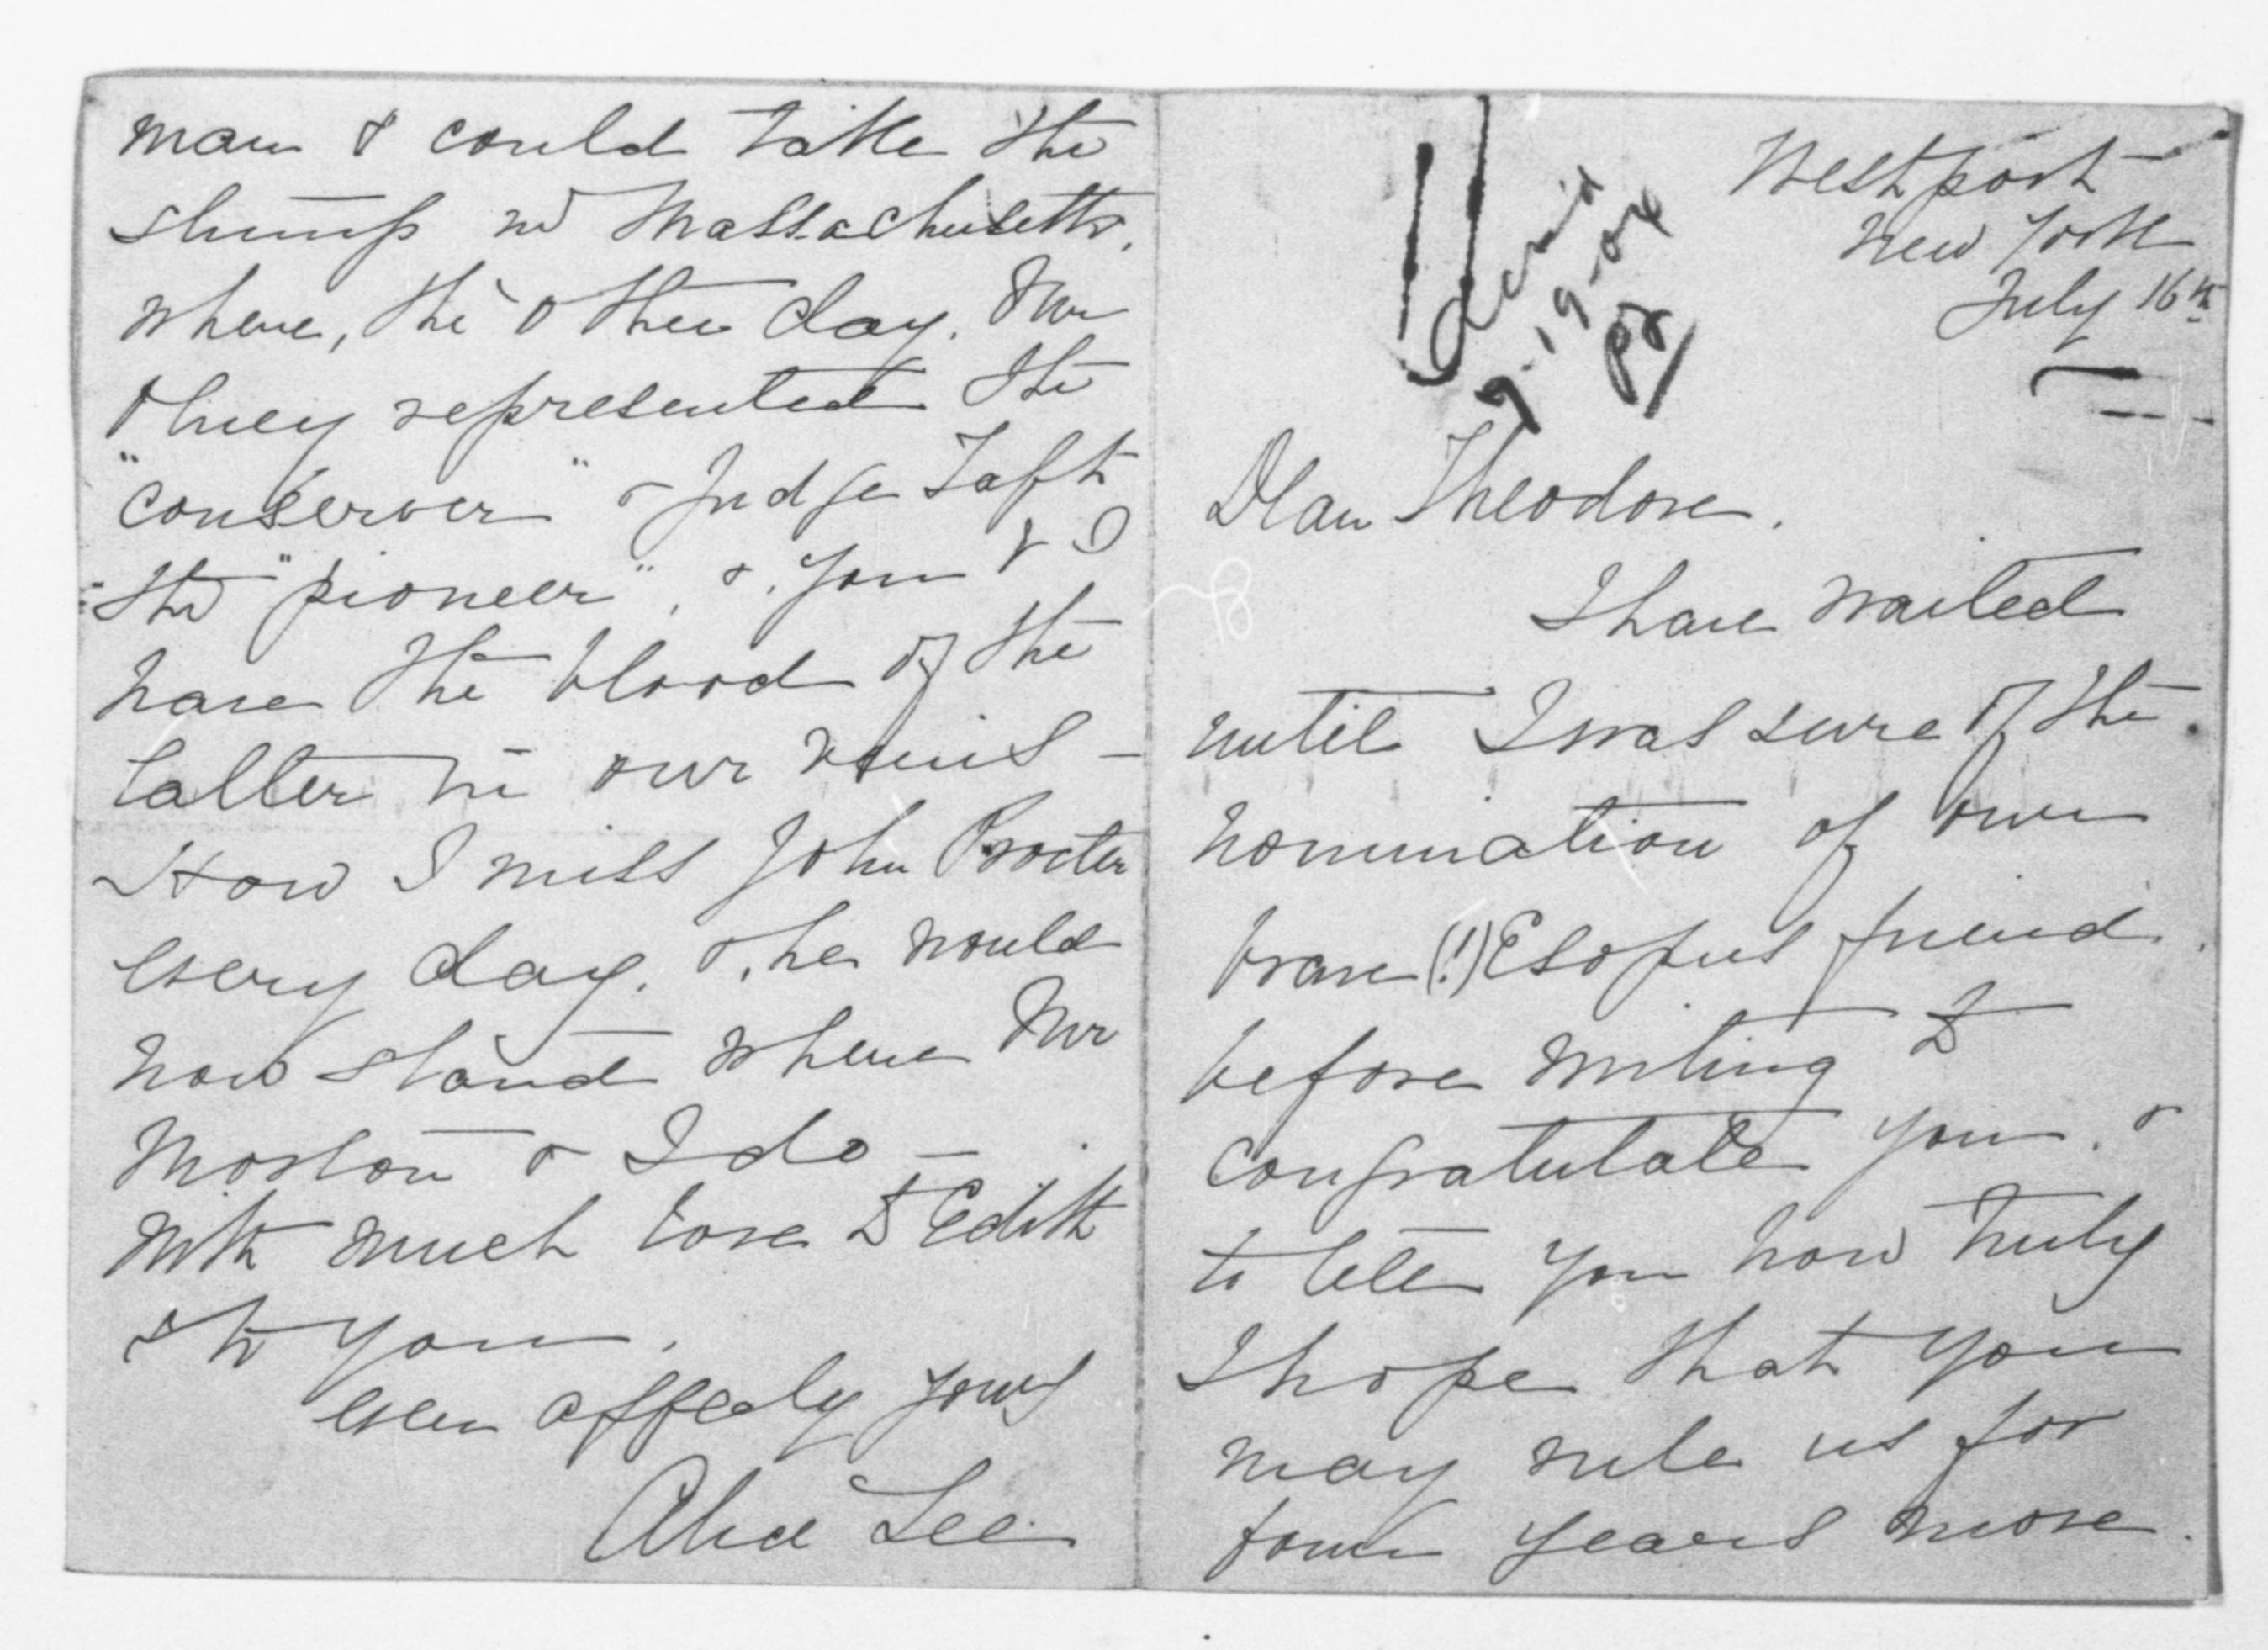 Westport
New York
July 16th
7-19-04
Dear Theodore.
I have waited
until I was sure of the
nomination of our
brave (!) Esopus friend
before writing to
congratulate you. &
to tell you how truly
I hope that you
may rule us for
four years more.
man & could take the
stump in Massachusetts,
where, the other day, Mr
Olney represented the
"conserver" & Judge Taft
the "pioneer", & you & I
have the blood of the
latter in our veins –
How I miss John Procter
every day, & he would
now stand where Mr
Morton & I do –
With much love to Edith
& to you,
ever affecly yours
Alice Lee